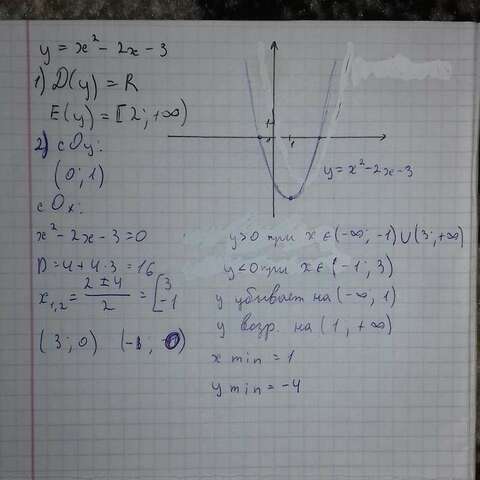 y = x² - 2x - 3
1) D(y) = R
E(y) = [2; +∞)
2) с Oy:
(0; 1)
с Ox:
x² - 2x - 3 = 0
D = 4 + 4·3 = 16
x₁,₂ = (2 ± 4)/2 = [3 -1
(3; 0) (-1; 0)
1
1
y = x² - 2x - 3
y > 0 при x ∈ (-∞; -1) ∪ (3; +∞)
y < 0 при x ∈ (-1; 3)
y убывает на (-∞; 1)
y возр. на (1, +∞)
x min = 1
y min = -4